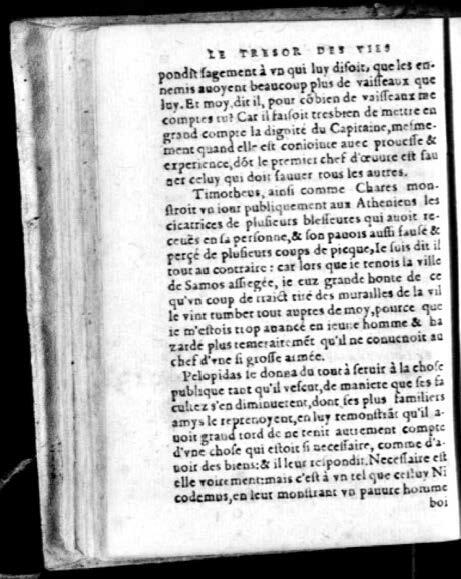 LE TRESOR DES VIES
pondit sagement à vn qui luy disoit, que les en-
nemis auoyent beaucoup plus de vaisseaux que
luy. Et moy, dit il, pour cõbien de vaisseaux me
comptes tu? Car il faisoit tresbien de mettre en
grand compte la dignité du Capitaine, mesme-
ment quand elle est conioincte auec prouesse &
experience, dõt le premier chef d'œuure est sau
uer celuy qui doit sauuer tous les autres.
Timotheus, ainsi comme Chares mon-
stroit vn iour publiquement aux Atheniens les
cicatrices de plusieurs blesseures qui auoit re-
ceuës en sa personne, & son pauois aussi faulsé &
perçé de plusieurs coups de picque, Ie suis dit il
tout au contraire: car lors que ie tenois la ville
de Samos assiegée, ie euz grande honte de ce
qu'vn coup de traict tiré des murailles de la vil
le vint tumber tout aupres de moy, pource que
ie m'estois trop auancé en ieune homme & ha
zardé plus temerairemẽt qu'il ne conuenoit au
chef d'vne si grosse armée.
Pelopidas se donna du tout à seruir à la chose
publique tant qu'il vescut, de maniere que ses fa
cultez s'en diminuerent, dont ses plus familiers
amys le reprenoyent, en luy remonstrãt qu'il a-
uoit grand tord de ne tenir autrement compte
d'vne chose qui estoit si necessaire, comme d'a-
uoir des biens: & il leur respondit, Necessaire est
elle voirement: mais c'est à vn tel que cestuy Ni
codemus, en leur monstrant vn pauure homme
boi